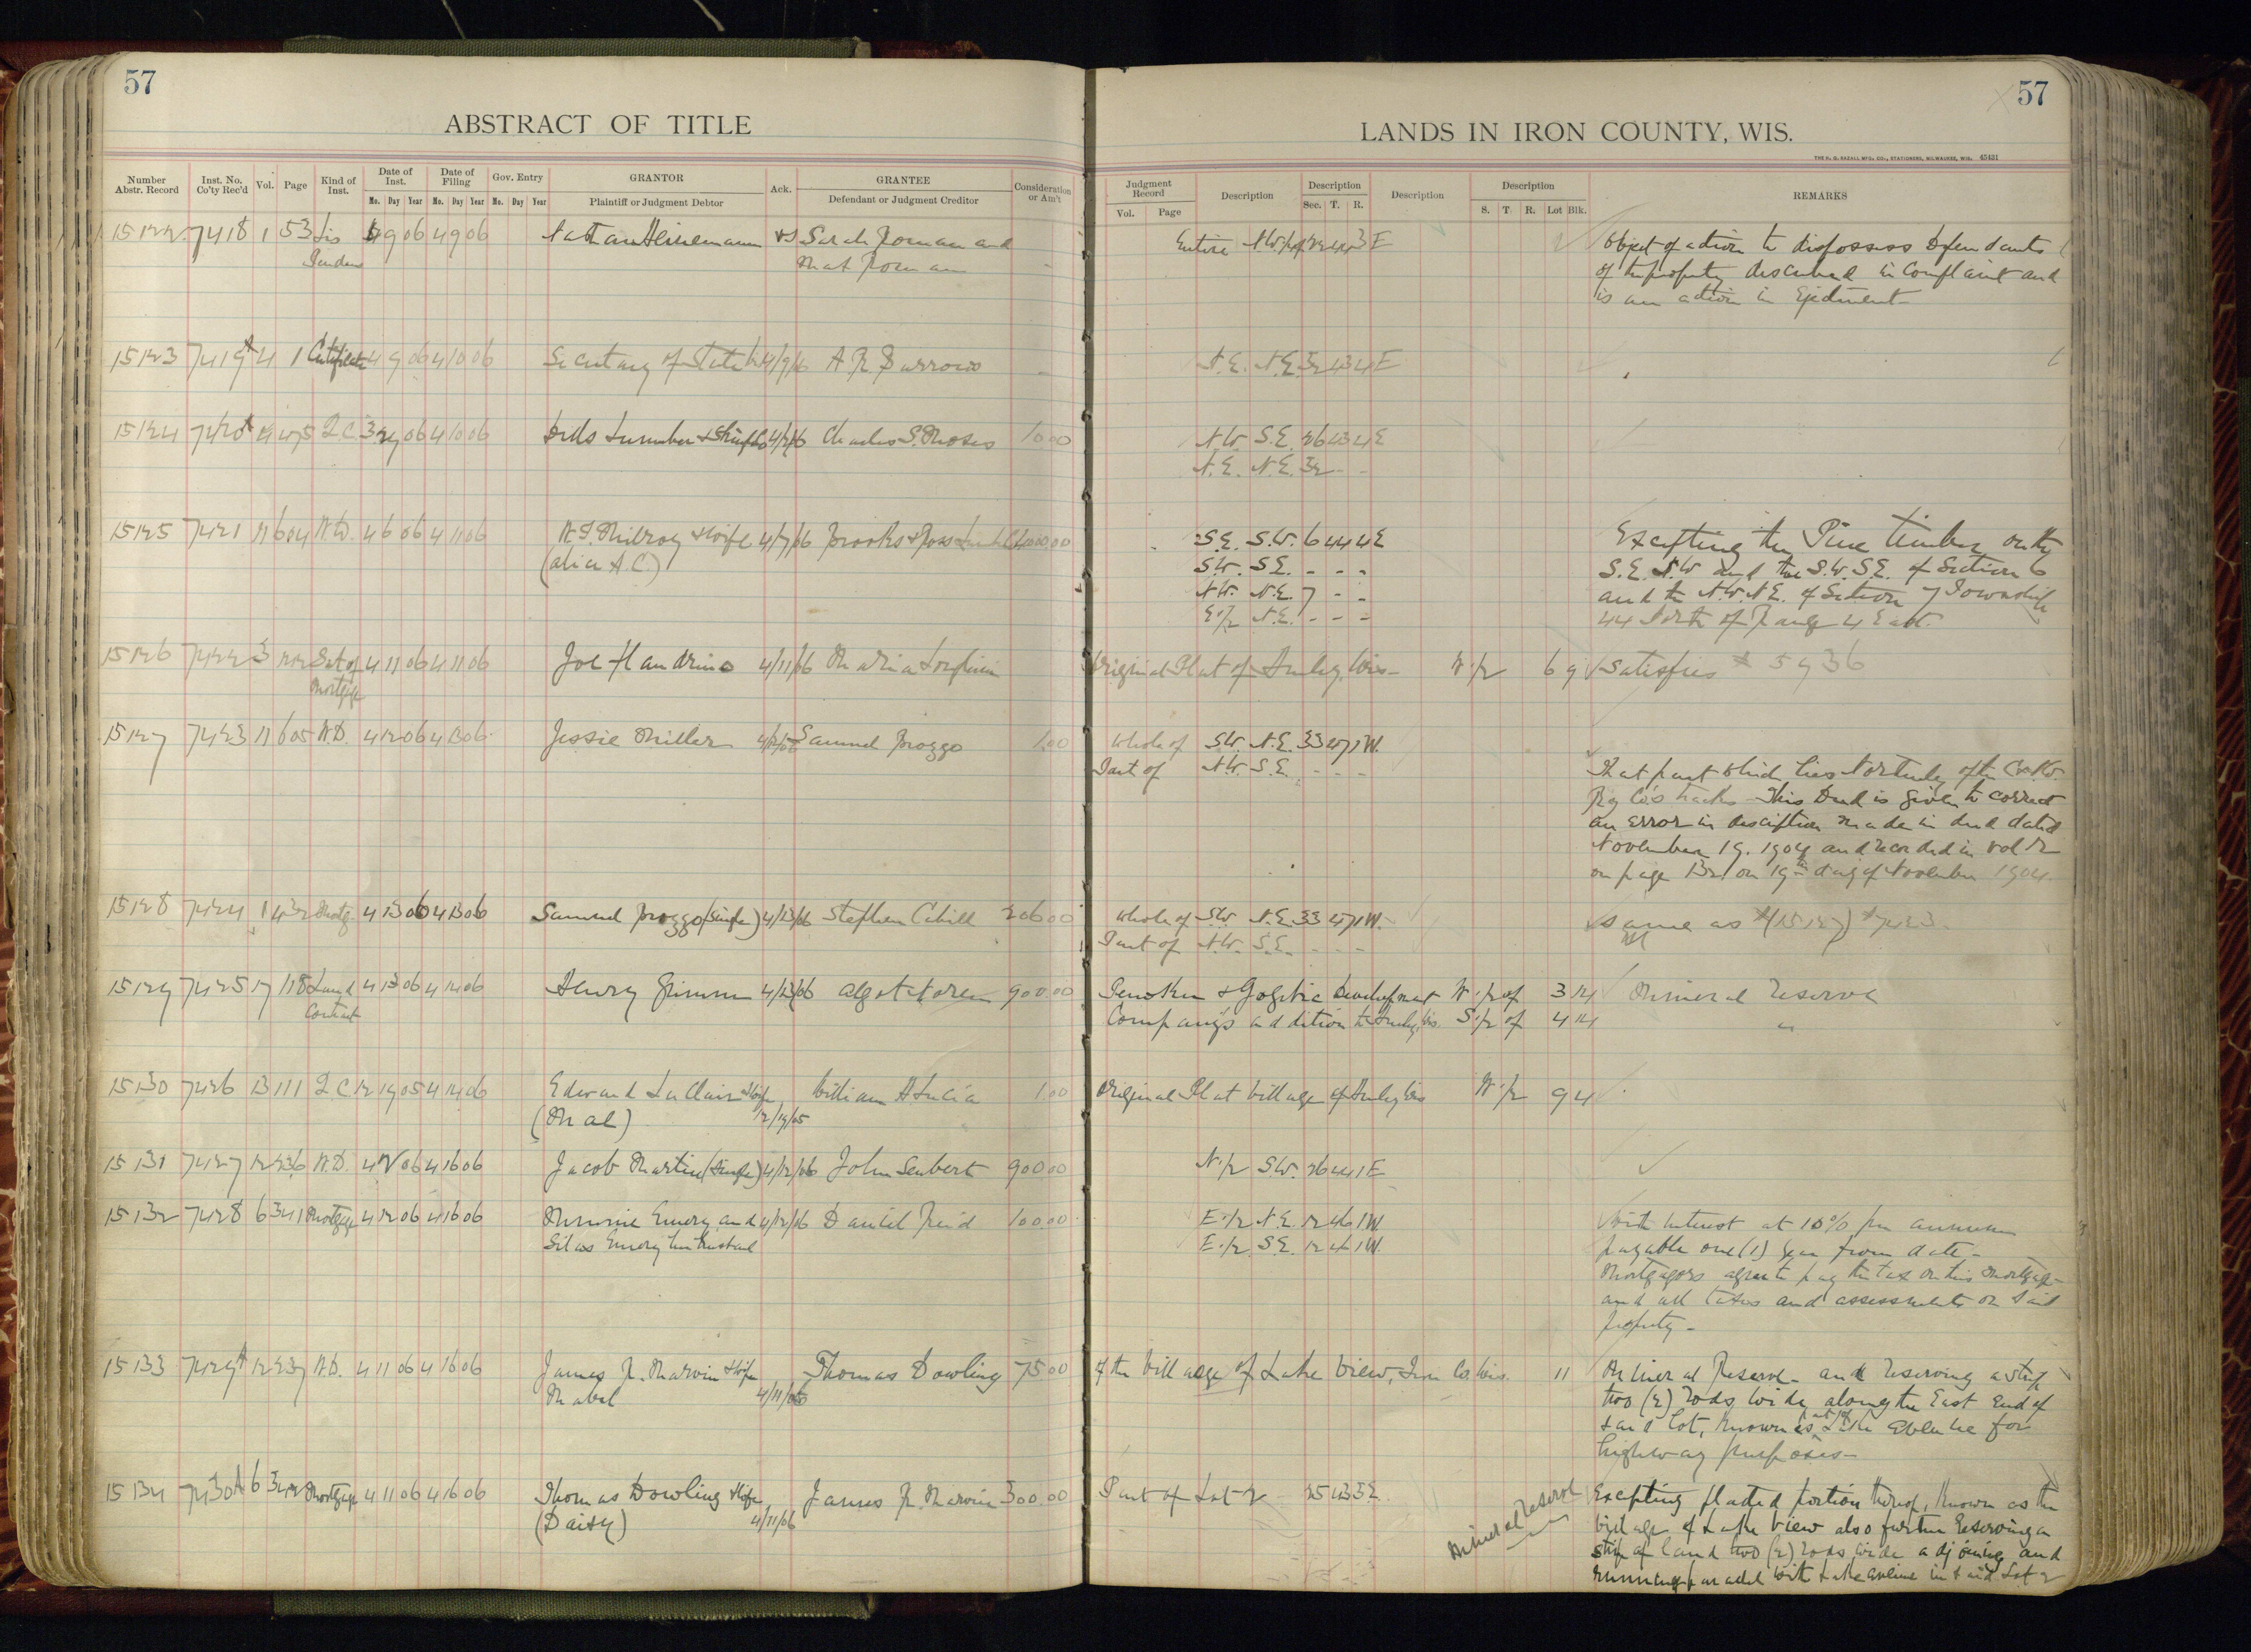 57
ABSTRACT OF TITLE
Number Abstr. Record Inst. No. Co'ty Rec'd Vol. Page Kind of Inst. Date of Inst. Date of Filing Gov. Entry GRANTOR Ack. GRANTEE Consideration or Am't
Mo. Day Year Mo. Day Year Mo. Day Year Plaintiff or Judgment Debtor Defendant or Judgment Creditor
15122 7418 1 53 Lis 4 9 06 4 9 06 Nathan Heinemann vs Sarah Roman and
Pendens Mat Roman
15123 7419 4 1 Certificate 4 9 06 4 10 06 Secretary of State 4/9/06 A R Burrows
15124 7420 Q C 3 29 06 4 10 06 Lumber & Charles S. Moses 10 00
15125 7421 11 604 W.D. 4 6 06 4 11 06 Milroy & Wife 4/7/06 Brooks & Ross 4000.00
(Alice A.C.)
15126 7422 3 Sat of 4 11 06 4 11 06 Joe Flandrino 4/11/06 Maria
Mortgage
15127 7423 11 605 W.D. 4 12 06 4 13 06 Jessie Miller Samuel Brozzo 1.00
15128 7424 1 432 Mortg. 4 13 06 4 13 06 Samuel Brozzo (single) 4/13/06 Stephen Cahill 206 00
15129 7425 17 118 Land 4 13 06 4 14 06 Henry Grimm 4/13/06 900.00
Contract
15130 7426 13 111 Q C 12 19 05 4 14 06 Edward LaClair & Wife William A Lucia 1.00
(Mal) 12/19/05
15131 7427 12 236 W.D. 4 12 06 4 16 06 Jacob Martin (Single) 4/12/06 John Seubert 900.00
15132 7428 6 341 Mortgage 4 12 06 4 16 06 Minnie Emery and 4/12/06 Daniel Reid 100.00
Silas Emery her husband
15133 7429 12 237 W.D. 4 11 06 4 16 06 James R. Marvin & Wife Thomas Dowling 75.00
Mabel 4/11/06
15134 7430 6 342 Mortgage 4 11 06 4 16 06 Thomas Dowling & Wife James R. Marvin 300.00
(Daisy) 4/11/06
57
LANDS IN IRON COUNTY, WIS.
THE H. G. RAZALL MFG. CO., STATIONERS, MILWAUKEE, WIS. 45431
Judgment Record Description Description Description Description REMARKS
Vol. Page Sec. T. R. S. T. R. Lot Blk.
Entire N.W. 1/4 22 44 3 E Object of action to dispossess Defendants
of the property described in Complaint and
is an action in Ejectment
N.E. N.E. 32 43 4 E
N.W. S.E. 26 43 4 E
N.E. N.E. 32 - -
S.E. S.W. 6 44 4 E Excepting the Pine timber on the
S.W. S.E. - - - S.E. S.W and the S.W. S.E. of Section 6
N.W. N.E. 7 - - and the N.W. N.E. of Section 7 Township
E 1/2 N.E. - - - 44 North of Range 4 East.
Original Plat of Hurley, Wis - W 1/2 6 9 Satisfies # 5936
Whole of S.W. N.E. 33 47 1 W.
Part of N.W. S.E. - - - That part which lies Northerly of the C. & N.W.
Ry Co's tracks - This Deed is given to correct
an error in description made in deed dated
November 19. 1904 and recorded in vol 12
on page 132 on 19th day of November 1904.
Whole of S.W. N.E. 33 47 1 W. Same as #(15127) #7423.
Part of N.W. S.E. - - -
Penokee & Gogebic Development W 1/2 of 3 14 Mineral reserve
Company's addition to Hurley, Wis. S 1/2 of 4 14 "
Original Plat Village of Hurley Wis W 1/2 9 4
N 1/2 S.W. 26 44 1 E
E 1/2 N.E. 12 46 1 W With interest at 10% per annum
E 1/2 S.E. 12 46 1 W. payable one (1) year from date -
Mortgagors agree to pay the tax on this mortgage -
and all taxes and assessments on said
property -
of the Village of Lake View, Iron Co. Wis. 11 Mineral Reserve - and reserving a strip
two (2) rods wide along the East End of
said Lot, Known as part of Lake Avenue for
highway purposes -
Part of Lot 2 25 43 3 E. Mineral reserve Excepting platted portion thereof, Known as the
Village of Lake View also further Reserving a
strip of land two (2) rods wide adjoining and
running parallel with Lake Avenue in said Lot 2